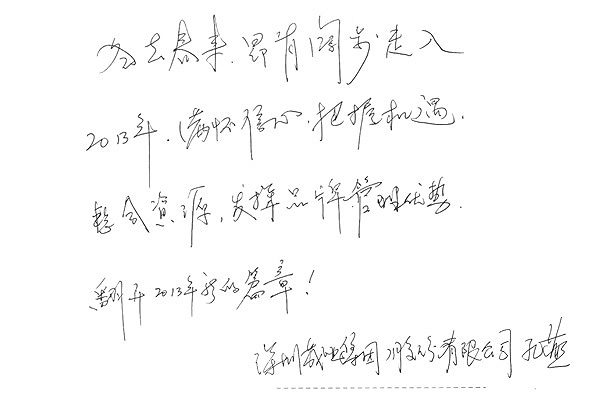 冬去春来,昂首阔步走入
2013年,满怀信心,把握机遇,
整合资源,发挥品牌管理优势,
翻开2013年新的篇章!
深圳 集团股份有限公司 孔燕